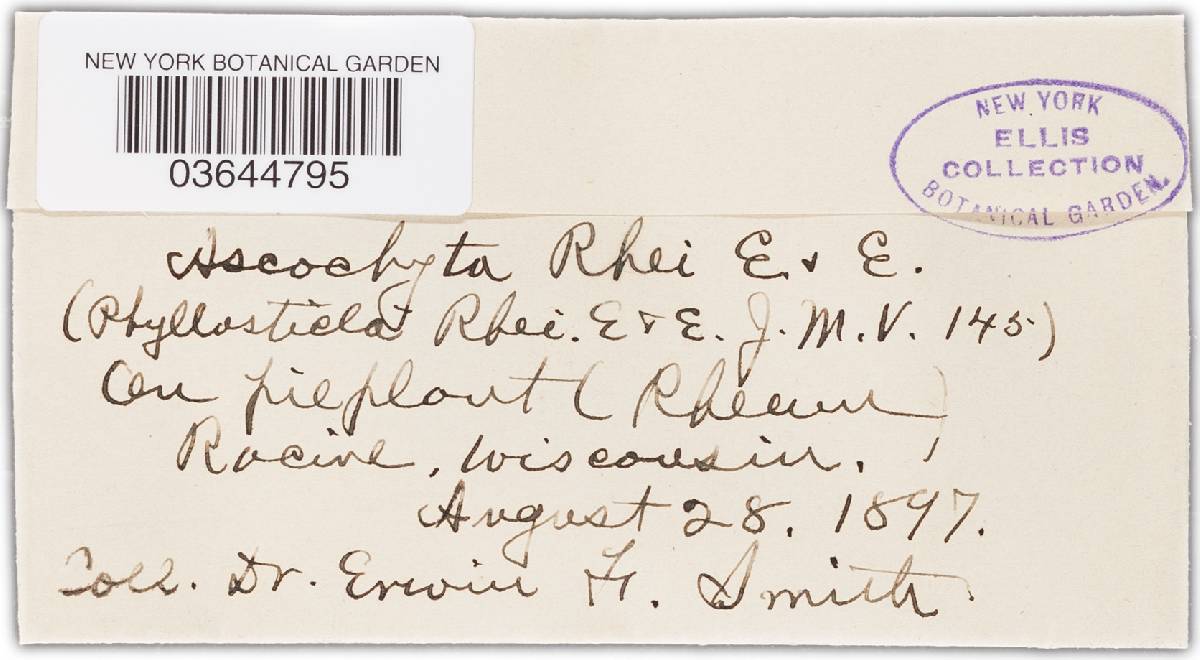 NEW YORK BOTANICAL GARDEN
03644795
NEW YORK
ELLIS
COLLECTION
BOTANICAL GARDEN.
Ascochyta Rhei E. & E.
(Phyllosticta Rhei. E & E. J. M. V. 145)
On pieplant (Rheum)
Racine, Wisconsin.
August 28. 1897.
Coll. Dr. Erwin F. Smith